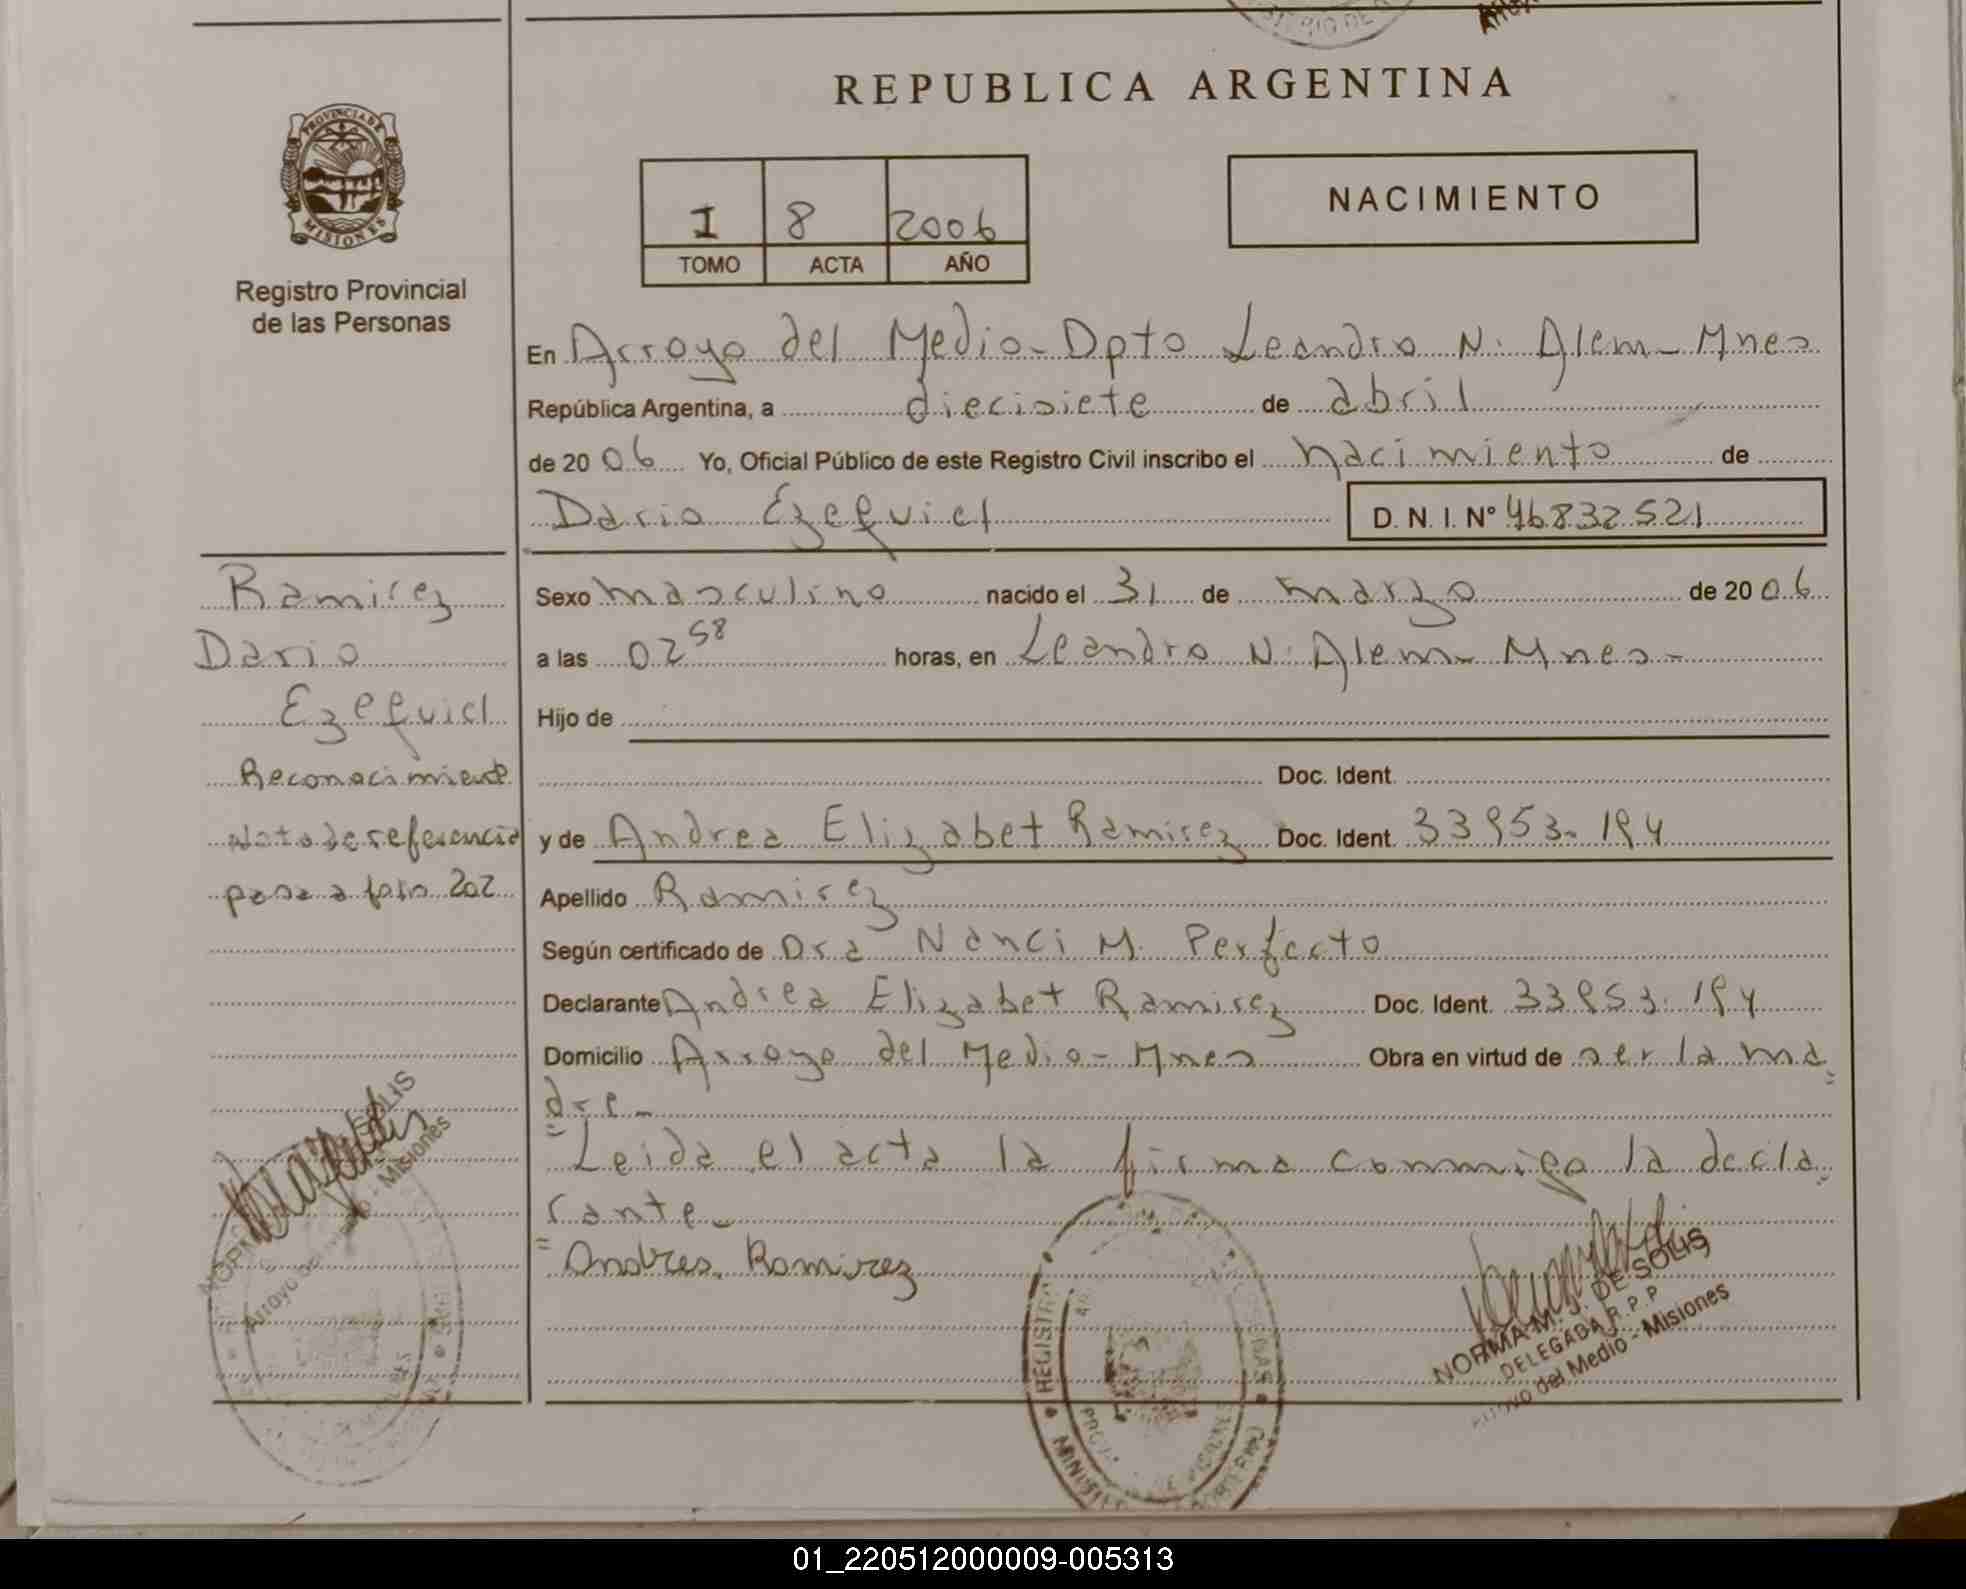 REPUBLICA ARGENTINA
PROVINCIA DE
MISIONES
Registro Provincial
de las Personas
I 8 2006
TOMO ACTA AÑO
NACIMIENTO
En Arroyo del Medio - Dpto Leandro N. Alem - Mnes
República Argentina, a diecisiete de abril
de 20 06 Yo, Oficial Público de este Registro Civil inscribo el nacimiento de
Dario Ezequiel D. N. I. N° 46832521
Ramirez
Dario
Ezequiel
Reconocimiento
Nota de referencia
pasa a folio 202
Sexo masculino nacido el 31 de marzo de 20 06
a las 02 58 horas, en Leandro N. Alem - Mnes -
Hijo de
Doc. Ident.
y de Andrea Elizabet Ramirez Doc. Ident. 33953.194
Apellido Ramirez
Según certificado de Dra Nanci M. Perfecto
Declarante Andrea Elizabet Ramirez Doc. Ident. 33953.194
Domicilio Arroyo del Medio - Mnes Obra en virtud de ser la ma
=dre -
Leida el acta la firma conmigo la decla
=rante -
Andrea Ramirez
NORMA M. J. DE SOLIS
DELEGADA R.P.P
Arroyo del Medio - Misiones
01_220512000009-005313